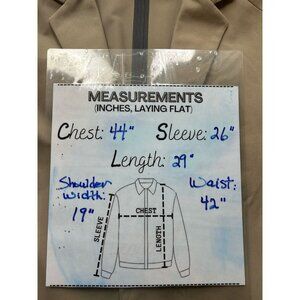 MEASUREMENTS
(INCHES, LAYING FLAT)
Chest: 44" Sleeve: 26"
Length: 29"
Shoulder Width: 19"
Waist: 42"
CHEST
SLEEVE
LENGTH